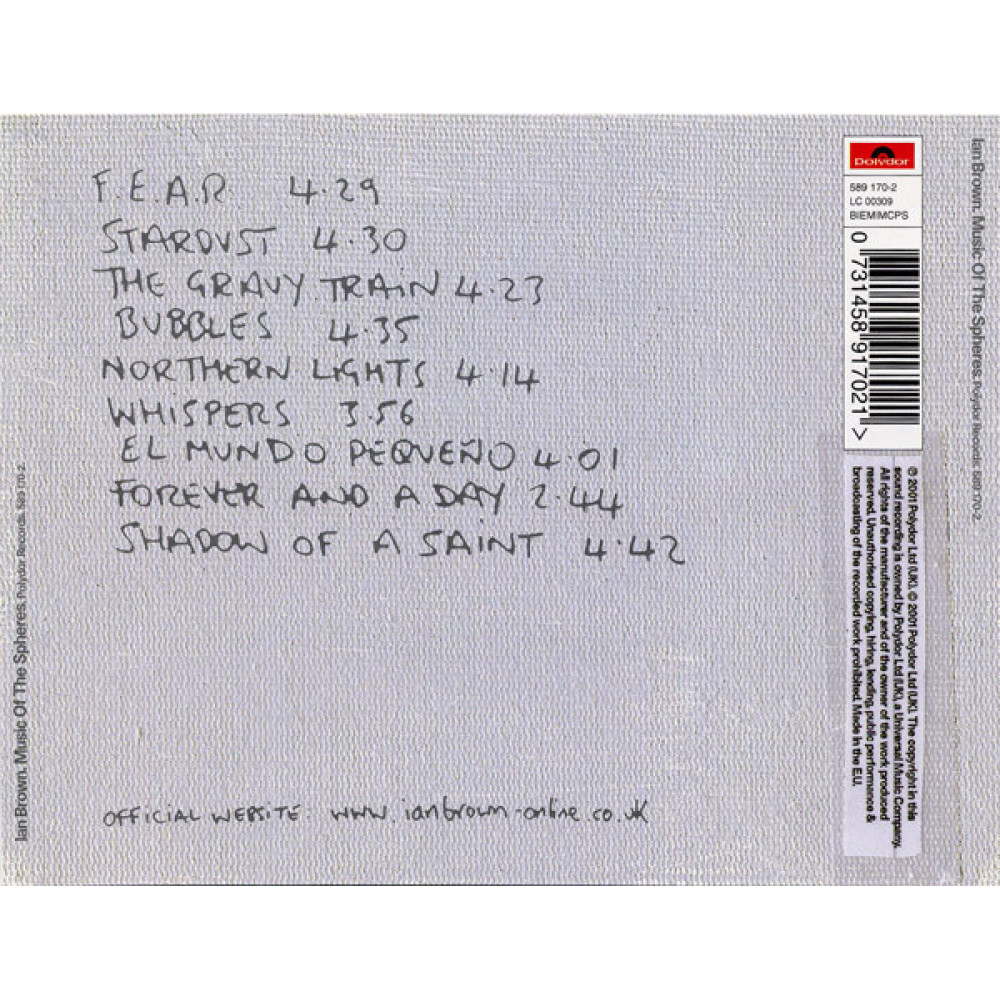 F.E.A.R. 4.29
STARDUST 4.30
THE GRAVY TRAIN 4.23
BUBBLES 4.35
NORTHERN LIGHTS 4.14
WHISPERS 3.56
EL MUNDO PEQUEÑO 4.01
FOREVER AND A DAY 2.44
SHADOW OF A SAINT 4.42
OFFICIAL WEBSITE: www.ianbrown-online.co.uk
Ian Brown. Music Of The Spheres. Polydor Records. 589 170-2.
Polydor
589 170-2
LC 00309
BIEM/MCPS
0 731458 917021 >
℗ 2001 Polydor Ltd (UK). © 2001 Polydor Ltd (UK). The copyright in this
sound recording is owned by Polydor Ltd (UK), a Universal Music Company.
All rights of the manufacturer and of the owner of the work produced
reserved. Unauthorised copying, hiring, lending, public performance &
broadcasting of the recorded work prohibited. Made in the E.U.
Ian Brown. Music Of The Spheres. Polydor Records. 589 170-2.